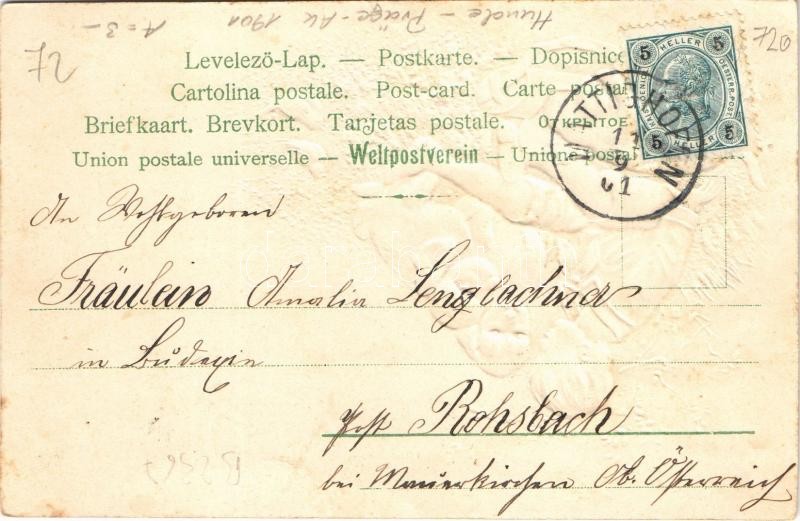 Hunde - Präge-AK 1901
A = 3 -
27
720
Levelezö-Lap. — Postkarte. — Dopisnice
Cartolina postale. Post-card. Carte postal
Briefkaart. Brevkort. Tarjetas postale. Открытое
Union postale universelle — Weltpostverein — Unione postal
5 HELLER 5
OESTERR.POST
5 HELLER 5
MATTIGHOFEN
11
9
01
An Wohlgeboren
Fräulein Amalia Lenglachner
in
Post Rohsbach
bei Mauerkirchen Ob. Österreich